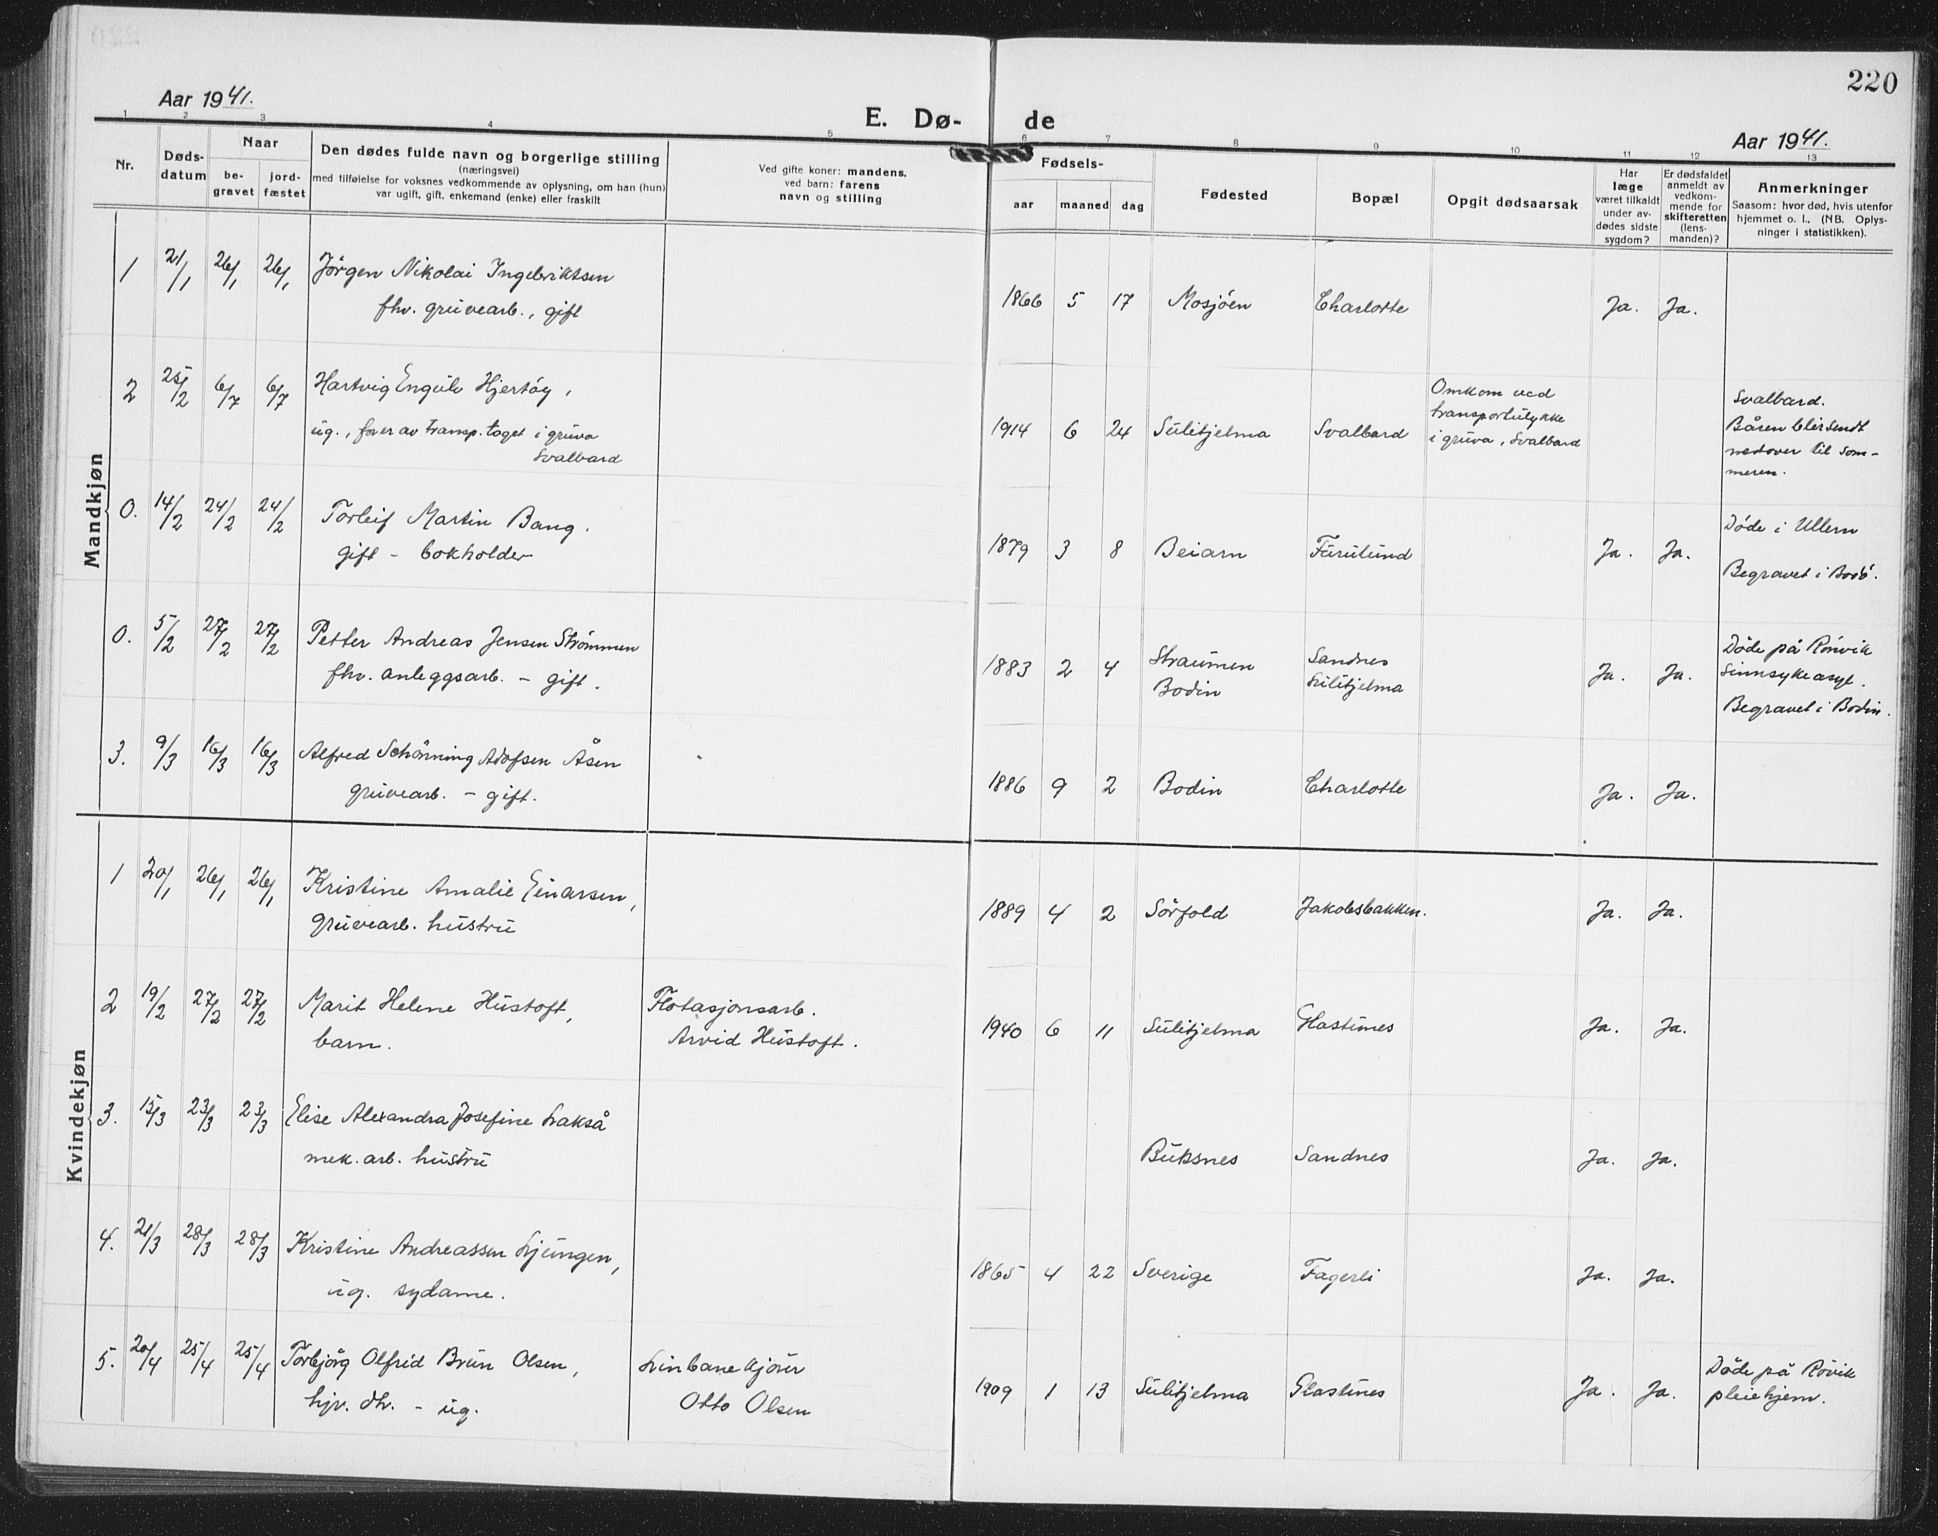 220
Aar 1941.
E. Dø- de
Aar 1941.
1 2 3 4 5 6 7 8 9 10 11 12 13
Nr.
Døds-
datum
Naar
be-
gravet
jord-
fæstet
Den dødes fulde navn og borgerlige stilling
(næringsvei)
med tilføielse for voksnes vedkommende av oplysning, om han (hun)
var ugift, gift, enkemand (enke) eller fraskilt
Ved gifte koner: mandens,
ved barn: farens
navn og stilling
Fødsels-
aar maaned dag
Fødested
Bopæl
Opgit dødsaarsak
Har
læge
været tilkaldt
under av-
dødes sidste
sygdom?
Er dødsfaldet
anmeldt av
vedkom-
mende for
skifteretten
(lens-
manden)?
Anmerkninger
Saasom: hvor død, hvis utenfor
hjemmet o. l., (NB. Oplys-
ninger i statistikken).
Mandkjøn
1 21/1 26/1 26/1 Jörgen Nikolai Ingebriktsen
fhv. gruvearb., gift
1866 5 17 Mosjöen Charlotte Ja. Ja.
2 25/2 6/7 6/7 Hartvig Engulv Hjertöy,
ug., fører av transp. toget i gruva
Svalbard
1914 6 24 Sulitjelma Svalbard
Omkom ved
transportulykke
i gruva, Svalbard
Svalbard.
Båren blir sendt
nedover til som-
meren.
0. 14/2 24/2 24/2 Torleif Martin Bang.
gift - bokholder
1879 3 8 Beiarn Furulund Ja. Ja.
Döde i Ullern
Begravet i Bodö.
0. 5/2 27/2 27/2 Petter Andreas Jensen Strömmen
fhv. anleggsarb. - gift.
1883 2 4 Straumen
Bodin
Sandnes
Sulitjelma
Ja. Ja.
Döde på Rönvik
Sinnsykeasyl.
Begravet i Bodin.
3. 9/3 16/3 16/3 Alfred Schönning Adofsen Åsen
gruvearb. - gift.
1886 9 2 Bodin Charlotte Ja. Ja.
Kvindekjøn
1 20/1 26/1 26/1 Kristine Amalie Einarsen,
gruvearb. hustru
1889 4 2 Sörfold Jakobsbakken. Ja. Ja.
2 19/2 27/2 27/2 Marit Helene Hustoft,
barn.
Flotasjonsarb.
Arvid Hustoft.
1940 6 11 Sulitjelma Glastunes Ja. Ja.
3. 15/3 23/3 23/3 Elise Alexandra Josefine Lakså
mek. arb. hustru
Buksnes Sandnes Ja. Ja.
4. 21/3 28/3 28/3 Kristine Andreassen Ljungen,
ug. sydame.
1865 4 22 Sverige Fagerli Ja. Ja.
5. 20/4 25/4 25/4 Torbjörg Olfrid Brun Olsen,
hjv. dtr. - ug.
Linbanekjörer
Otto Olsen
1909 1 13 Sulitjelma Glastunes Ja. Ja.
Döde på Rövik
pleiehjem.